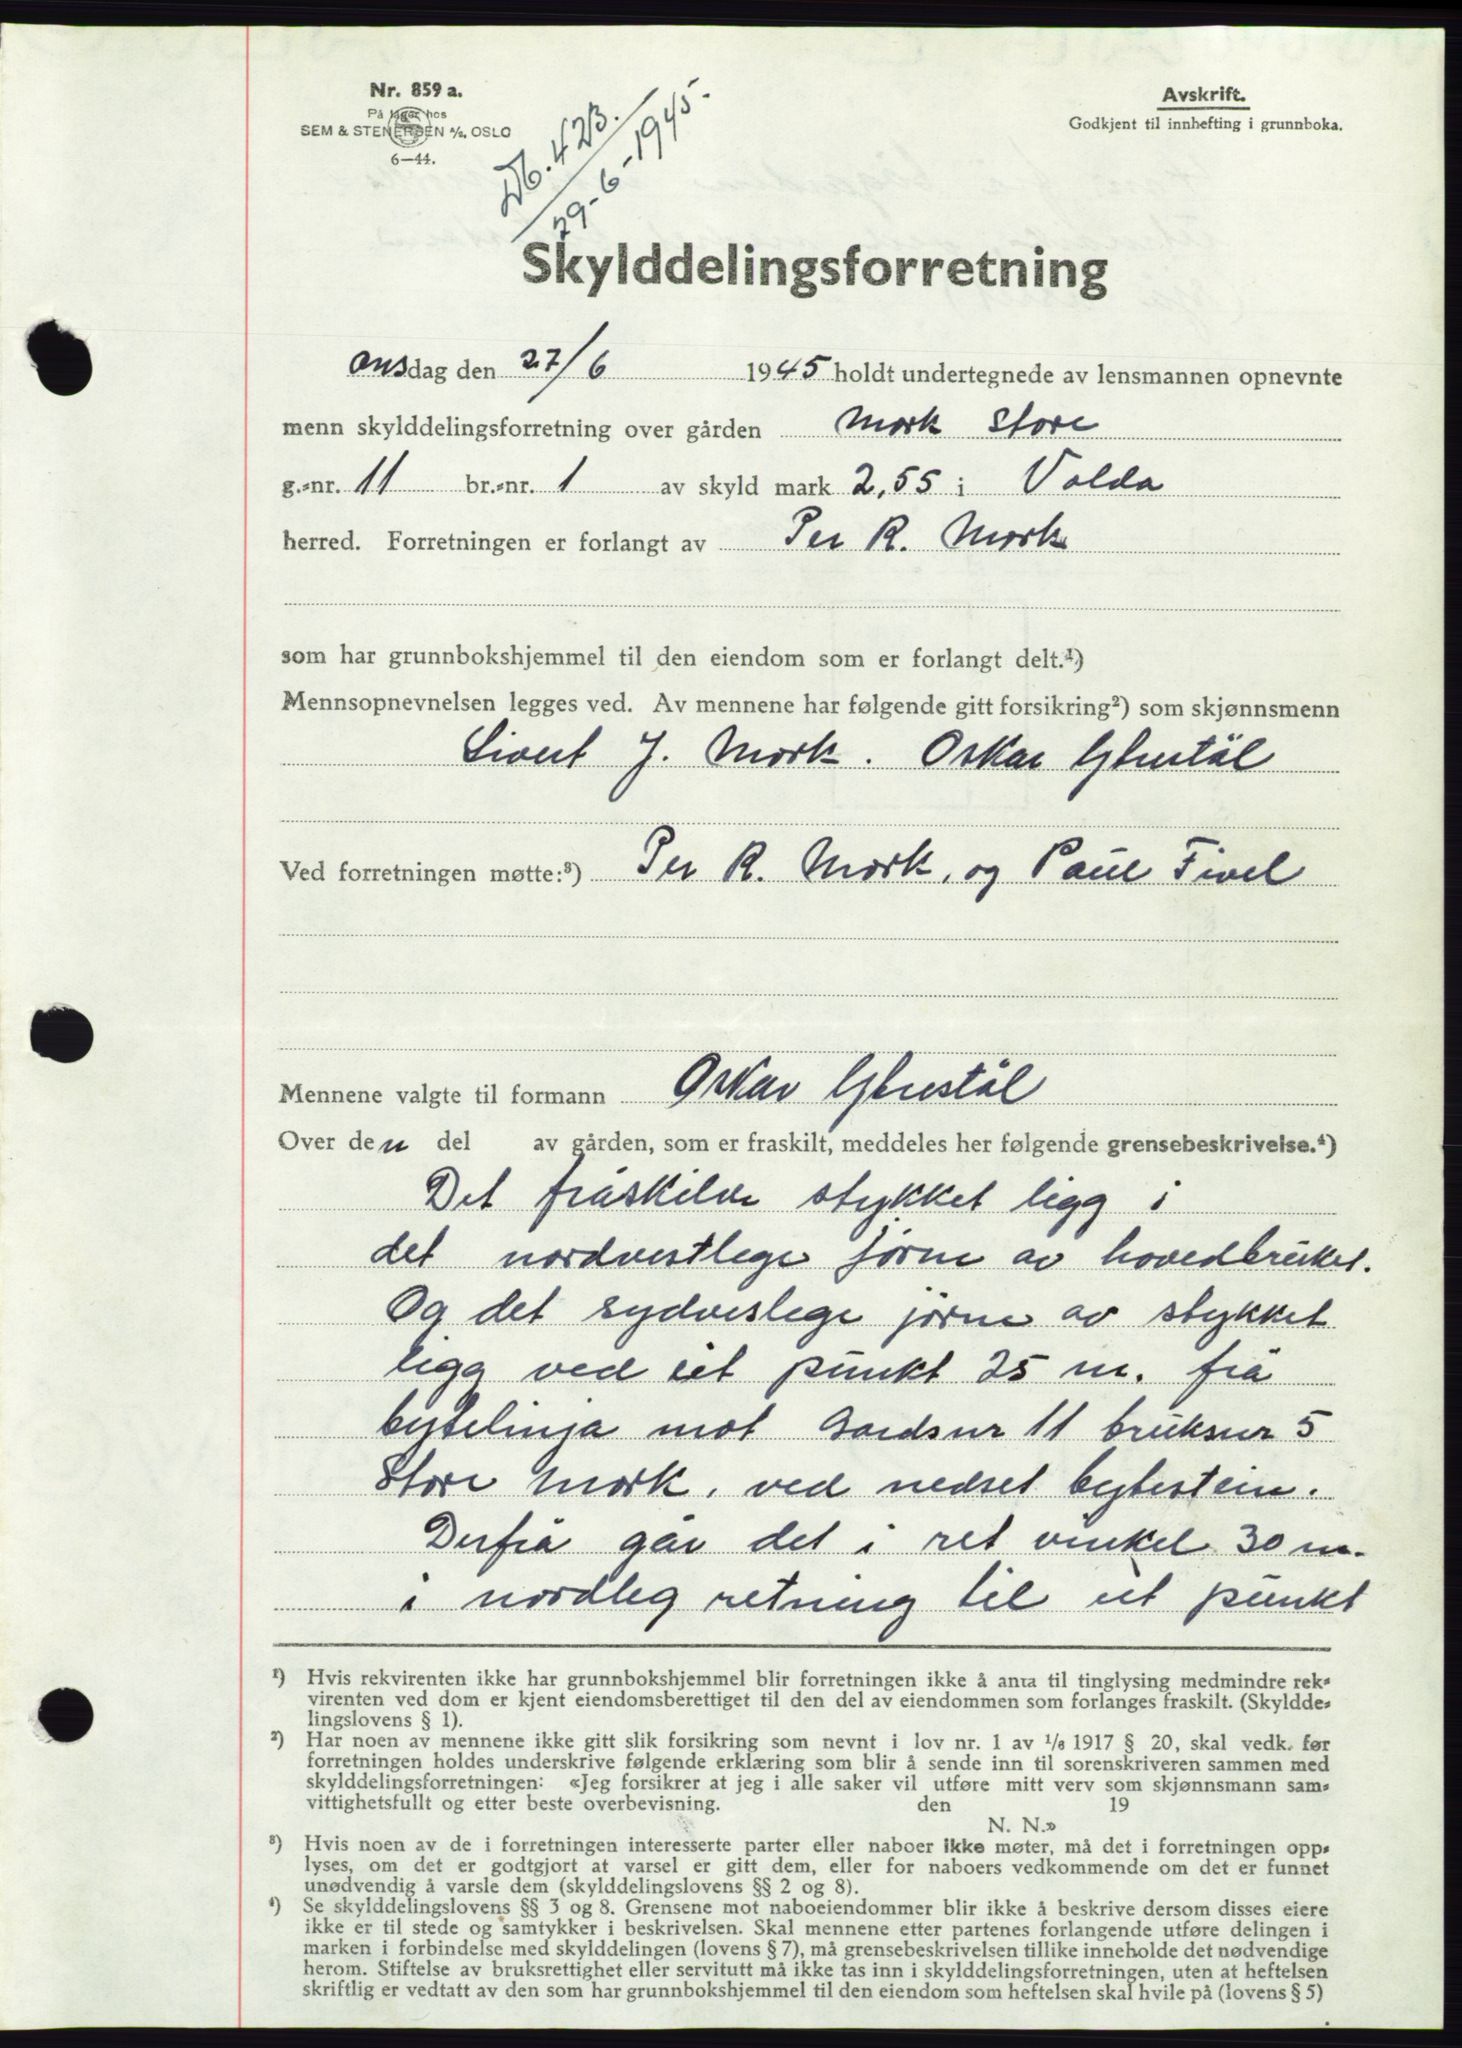 Nr. 859 a.
På lager hos
SEM & STENERSEN A/S, OSLO
6—44.
Db. 42B.
29-6-1945.
Avskrift.
Godkjent til innhefting i grunnboka.
Skylddelingsforretning
onsdag den 27/6 1945 holdt undertegnede av lensmannen opnevnte
menn skylddelingsforretning over gården Mork Store
g.-nr. 11 br.-nr. 1 av skyld mark 2,55 i Volda
herred. Forretningen er forlangt av Per R. Mork
som har grunnbokshjemmel til den eiendom som er forlangt delt.¹)
Mennsopnevnelsen legges ved. Av mennene har følgende gitt forsikring²) som skjønnsmenn
Sivert J. Mork. Oskar
Ved forretningen møtte:³) Per R. Mork, og Paul Fivel
Mennene valgte til formann Oskar
Over den del av gården, som er fraskilt, meddeles her følgende grensebeskrivelse.⁴)
Det fråskilde stykket ligg i
det nordvestlege jørne av hovedbruket.
Og det sydveslege jørne av stykket
ligg ved eit punkt 25 m. frå
bytelinja mot Gardsnr 11 bruksnr 5
Store Mork, ved nedset bytestein.
Derfrå går det i ret vinkel 30 m.
i nordleg retning til eit punkt
¹) Hvis rekvirenten ikke har grunnbokshjemmel blir forretningen ikke å anta til tinglysing medmindre rek-
virenten ved dom er kjent eiendomsberettiget til den del av eiendommen som forlanges fraskilt. (Skyldde-
lingslovens § 1).
²) Har noen av mennene ikke gitt slik forsikring som nevnt i lov nr. 1 av 1/8 1917 § 20, skal vedk. før
forretningen holdes underskrive følgende erklæring som blir å sende inn til sorenskriveren sammen med
skylddelingsforretningen: «Jeg forsikrer at jeg i alle saker vil utføre mitt verv som skjønnsmann sam-
vittighetsfullt og etter beste overbevisning. den 19
N. N.»
³) Hvis noen av de i forretningen interesserte parter eller naboer ikke møter, må det i forretningen opp-
lyses, om det er godtgjort at varsel er gitt dem, eller for naboers vedkommende om det er funnet
unødvendig å varsle dem (skylddelingslovens §§ 2 og 8).
⁴) Se skylddelingslovens §§ 3 og 8. Grensene mot naboeiendommer blir ikke å beskrive dersom disses eiere
ikke er til stede og samtykker i beskrivelsen. Skal mennene etter partenes forlangende utføre delingen i
marken i forbindelse med skylddelingen (lovens § 7), må grensebeskrivelsen tillike inneholde det nødvendige
herom. Stiftelse av bruksrettighet eller servitutt må ikke tas inn i skylddelingsforretningen, uten at heftelsen
skriftlig er vedtatt av den som har grunnbokshjemmel til den eiendom som heftelsen skal hvile på (lovens § 5)